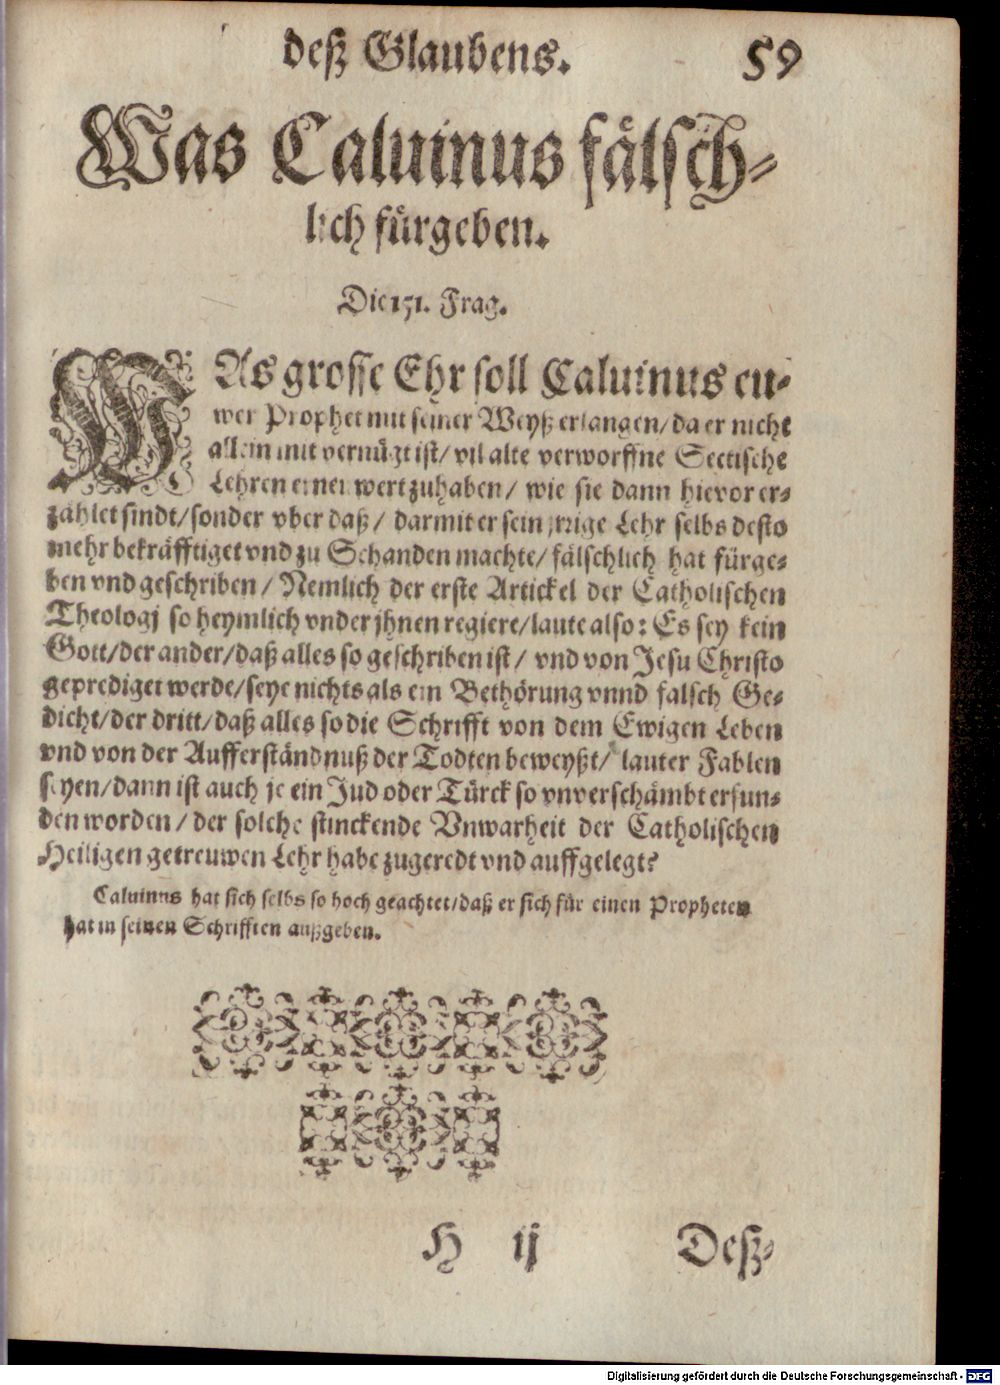 deß Glaubens. 59
Was Caluinus fälsch-
lich fürgeben.
Die 151. Frag.
WAs grosse Ehr soll Caluinus eu-
wer Prophet mit seiner Weyß erlangen/ da er nicht
allein mit vernügt ist/ vil alte verworffne Sectische
Lehren ernewert zuhaben/ wie sie dann hievor er-
zählet sindt/ sonder vber daß/ darmit er sein jrrige Lehr selbs desto
mehr bekräfftiget vnd zu Schanden machte/ fälschlich hat fürge-
ben vnd geschriben/ Nemlich der erste Artickel der Catholischen
Theologj so heymlich vnder jhnen regiere/ laute also: Es sey kein
Gott/ der ander/ daß alles so geschriben ist/ vnd von Jesu Christo
geprediget werde/ seye nichts als ein Bethörung vnnd falsch Ge-
dicht/ der dritt/ daß alles so die Schrifft von dem Ewigen Leben
vnd von der Aufferständnuß der Todten beweyßt/ lauter Fablen
seyen/ dann ist auch je ein Jud oder Türck so vnverschämbt erfun-
den worden/ der solche stinckende Vnwarheit der Catholischen
Heiligen getreuwen Lehr habe zugeredt vnd auffgelegt?
Caluinus hat sich selbs so hoch geachtet/ daß er sich für einen Propheten
hat in seinen Schrifften außgeben.
H ij Deß-
Digitalisierung gefördert durch die Deutsche Forschungsgemeinschaft - DFG